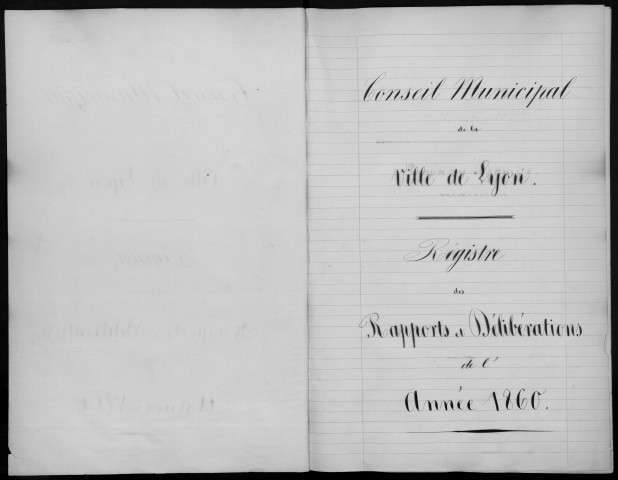 Conseil Municipal
de la
Ville de Lyon.
Régistre
des
Rapports et Délibérations
de l'
Année 1860.